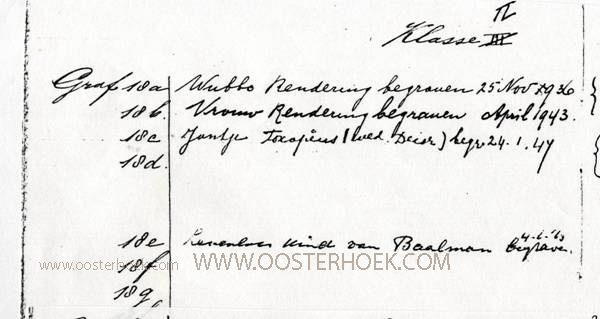 II
Klasse III
Graf 18a Wubbo Rendering begraven 25 Nov 1936
18b. Vrouw Rendering begraven April 1943.
18c Jantje (wed. ) begr. 24.1.47
18d.
18e Levenloos kind van Baalman begraven
www.oosterhoek.com 18f WWW.OOSTERHOEK.COM
18g.